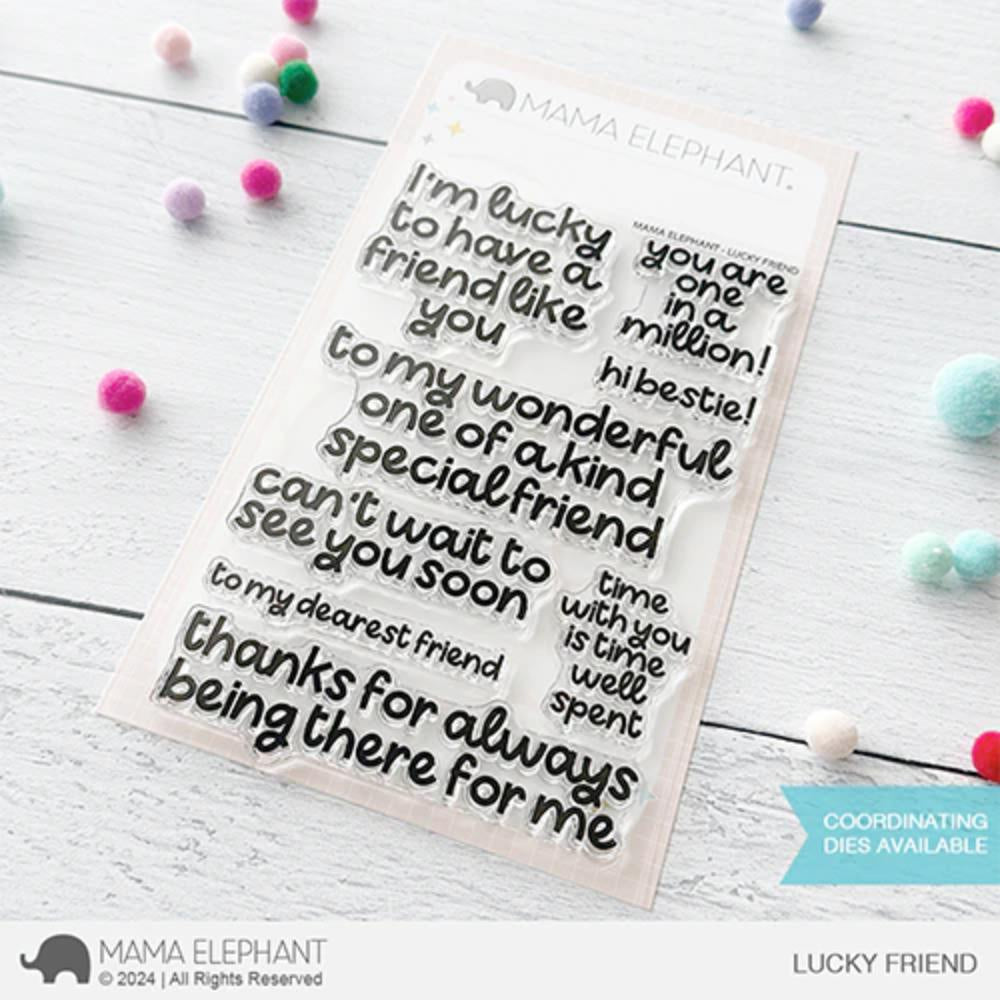 MAMA ELEPHANT.
I'm lucky
to have a
friend like
you
MAMA ELEPHANT - LUCKY FRIEND
you are
one
in a
million!
hi bestie!
to my wonderful
one of a kind
special friend
can't wait to
see you soon
to my dearest friend
time
with you
is time
well
spent
thanks for always
being there for me
COORDINATING
DIES AVAILABLE
MAMA ELEPHANT
© 2024 | All Rights Reserved
LUCKY FRIEND